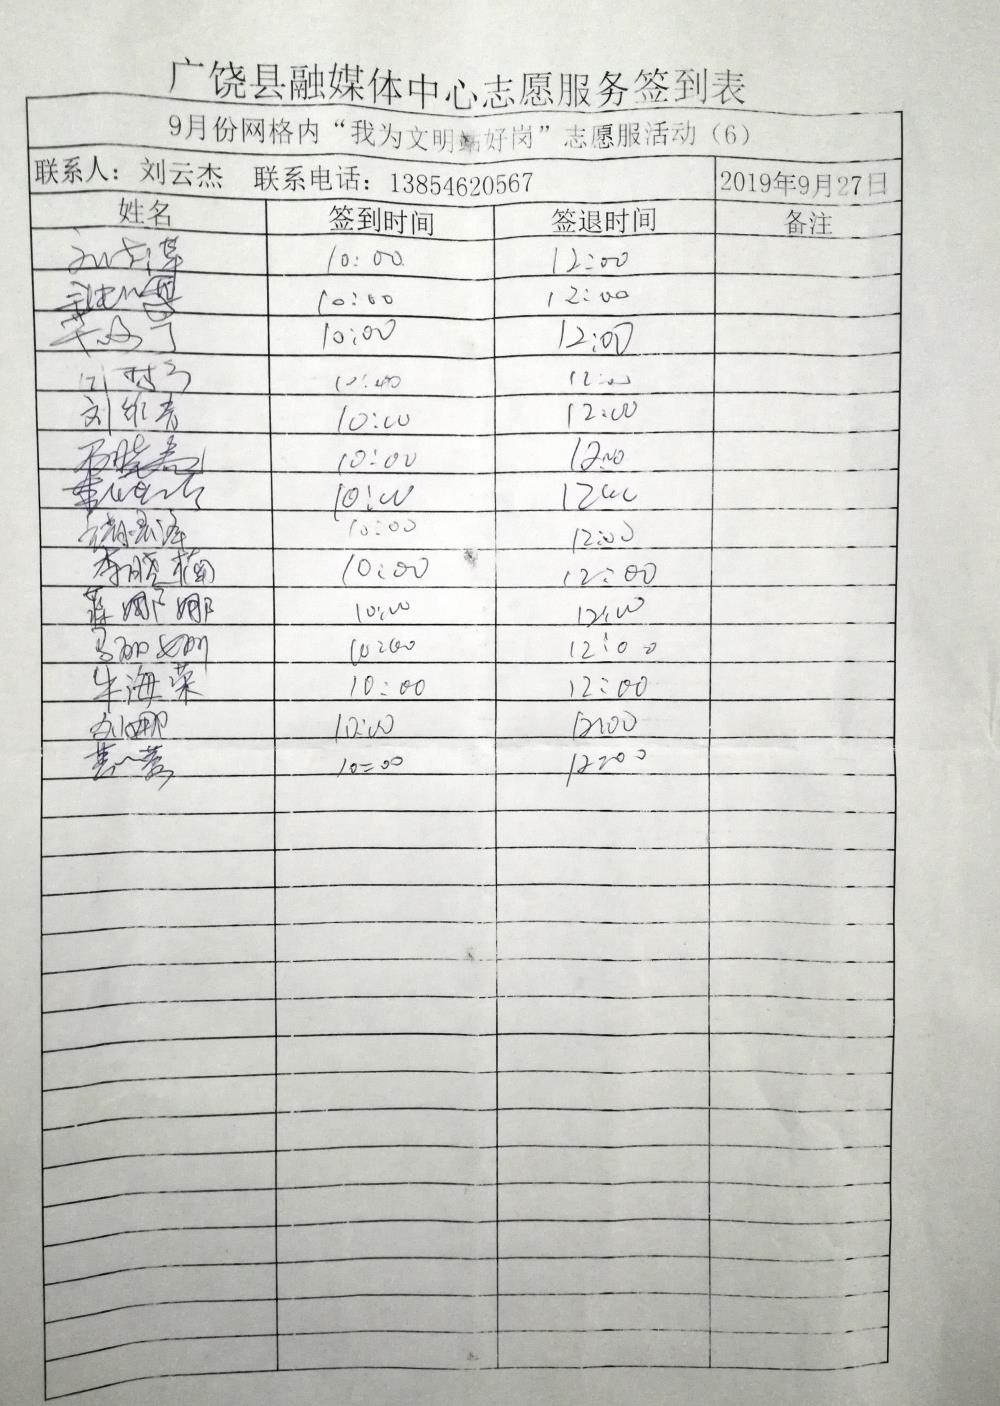 广饶县融媒体中心志愿服务签到表
9月份网格内“我为文明站好岗”志愿服活动（6）
联系人：刘云杰 联系电话：13854620567 2019年9月27日
姓名 签到时间 签退时间 备注
10:00 12:00
10:00 12:00
10:00 12:00
10:00 12:00
刘维青 10:00 12:00
10:00 12:00
10:00 12:00
10:00 12:00
李晓楠 10:00 12:00
娜娜 10:00 12:00
10:00 12:00
牛海荣 10:00 12:00
刘娜 10:00 12:00
10:00 12:00